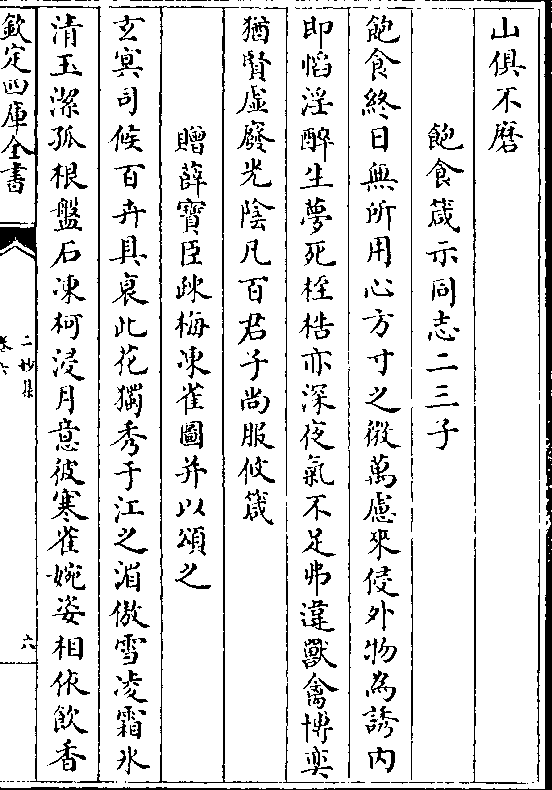 山俱不磨
飽食箴示同志二三子
飽食終日無所用心方寸之微萬慮來侵外物為誘内
即慆淫醉生夢死桎梏亦深夜氣不足弗違獸禽博奕
猶賢虚廢光陰凡百君子尚服攸箴
贈薛寶臣疎梅凍雀圖并以頌之
玄冥司候百卉具衰此花獨秀于江之湄傲雪凌霜氷
清玉潔孤根盤石凍柯浸月意彼寒雀婉姿相依飲香
欽定四庫全書
二妙集
卷六
六